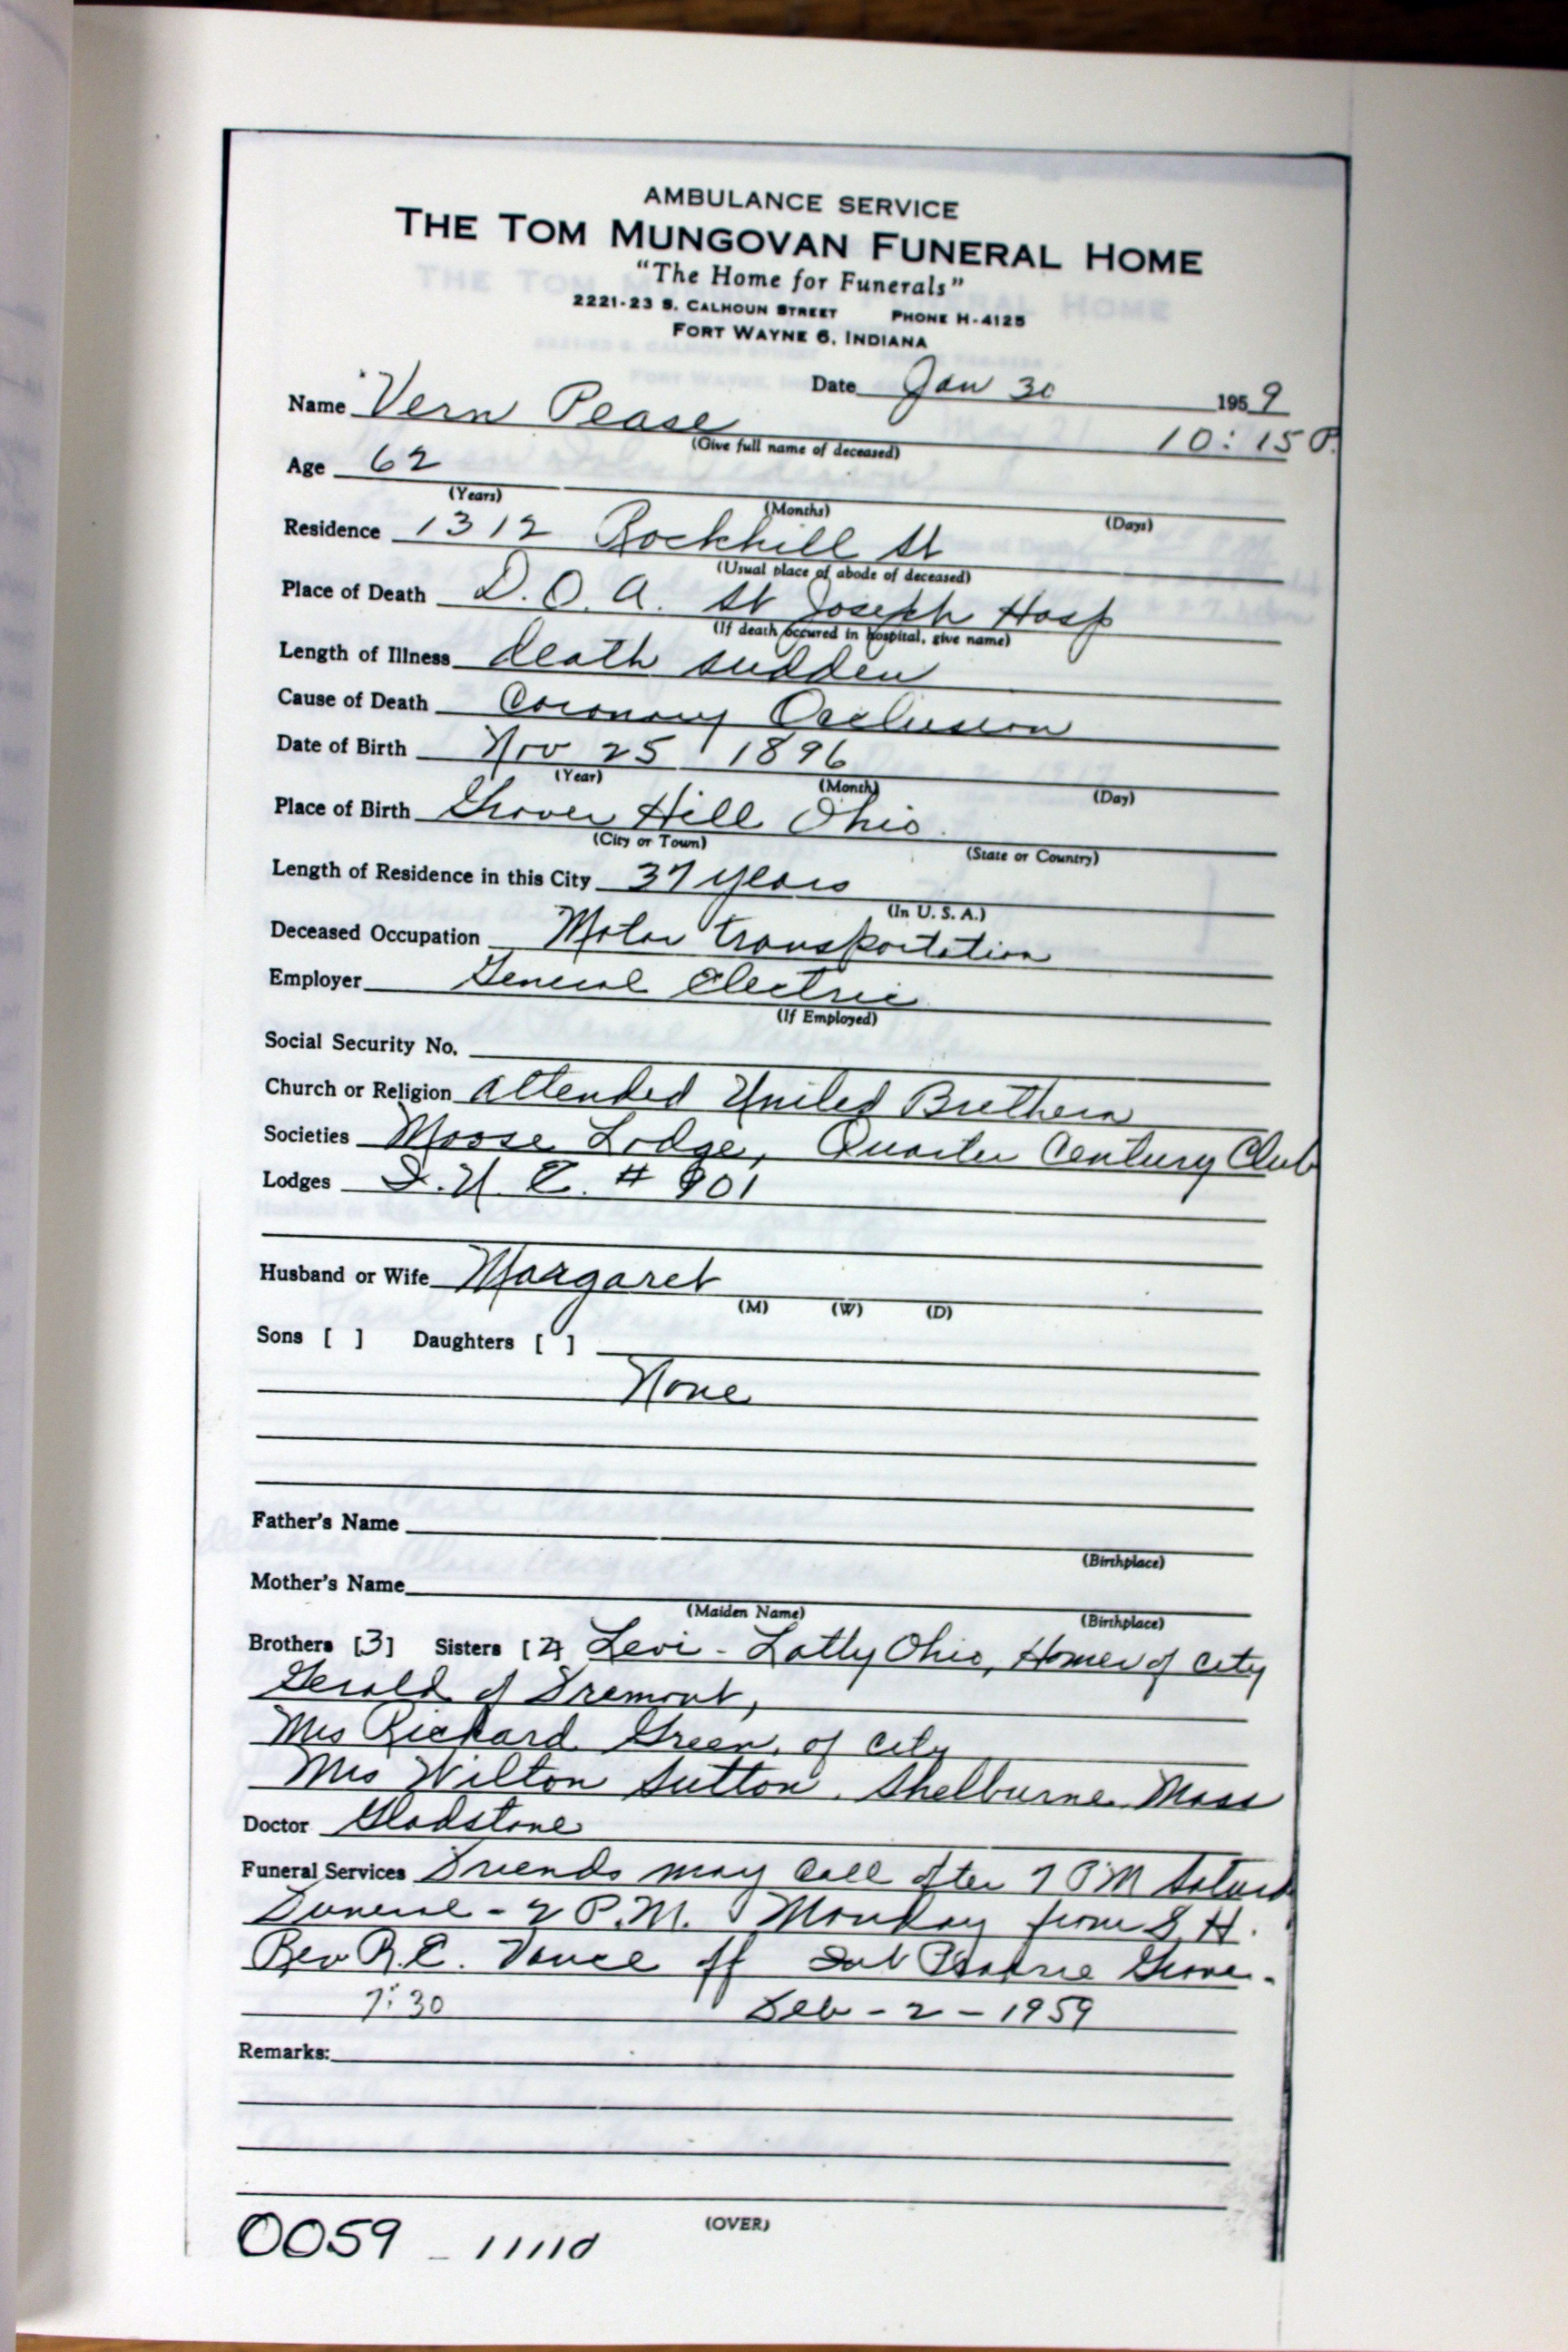 AMBULANCE SERVICE
THE TOM MUNGOVAN FUNERAL HOME
"The Home for Funerals"
2221-23 S. CALHOUN STREET PHONE H-4125
FORT WAYNE 6, INDIANA
Date Jan 30 1959
Name Vern Pease 10:15 P.
(Give full name of deceased)
Age 62
(Years) (Months) (Days)
Residence 1312 Rockhill St
(Usual place of abode of deceased)
Place of Death D.O.A. St Joseph Hosp
(If death occured in hospital, give name)
Length of Illness death sudden
Cause of Death Coronary Occlusion
Date of Birth Nov 25, 1896
(Year) (Month) (Day)
Place of Birth Grover Hill Ohio
(City or Town) (State or Country)
Length of Residence in this City 37 years
(In U. S. A.)
Deceased Occupation Motor transportation
Employer General Electric
(If Employed)
Social Security No.
Church or Religion attended United Brethern
Societies Moose Lodge, Quarter Century Club
Lodges I.U.E. # 901
Husband or Wife Margaret
(M) (W) (D)
Sons [ ] Daughters [ ]
None
Father's Name
(Birthplace)
Mother's Name
(Maiden Name) (Birthplace)
Brothers [3] Sisters [2] Levi - Latty Ohio, Homer of city
Gerald of Fremont,
Mrs Richard Green, of city
Mrs Wilton Sutton, Shelburne Mass
Doctor Gladstone
Funeral Services Friends may call after 7 PM Saturd
Funeral - 2 P.M. Monday from F.H.
Rev R.E. Vance off Prairie Grove.
7:30 Feb - 2 - 1959
Remarks:
(OVER)
0059